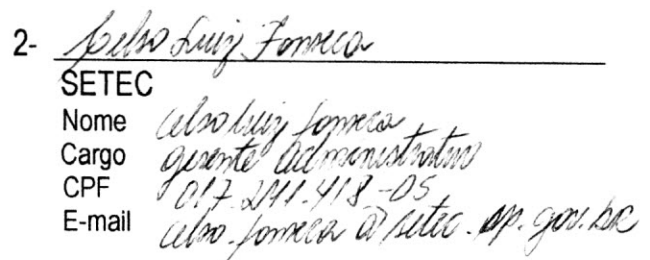 2- Celso Luiz Fonseca
SETEC
Nome celso luiz fonseca
Cargo gerente administrativo
CPF 017.241.418-05
E-mail celso.fonseca@setec.sp.gov.br